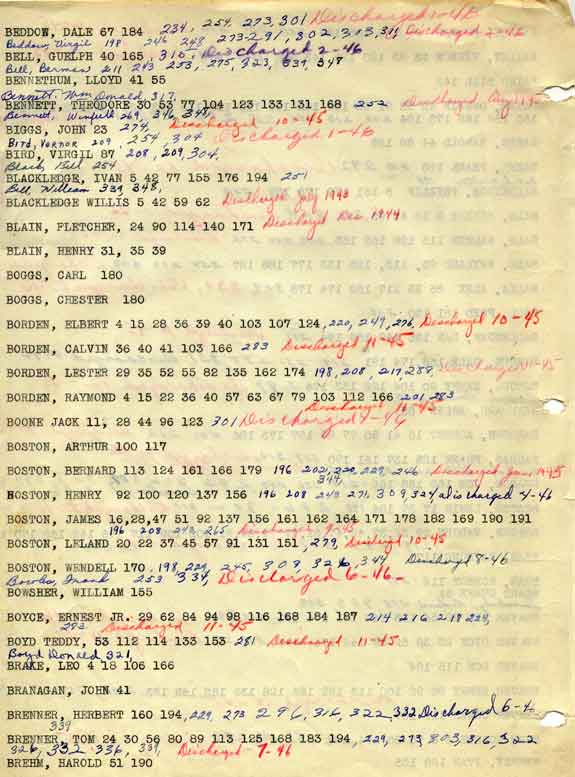 BEDDON, DALE 67 184 234, 254, 273, 301 Discharged 1-46
Beddow, Virgil 198 246 248 273-291, 302, 303, 311 Discharged 2-46
BELL, GUELPH 40 165, 316, Discharged 2-46
Bell, Bernard 211 243 253, 275, 323, 339, 348
BENNETHUM, LLOYD 41 55
Bennett, Wm Donald, 317,
BENNETT, THEODORE 30 53 77 104 123 133 131 168 252 Discharged
Bennett, Winfield 269, 346, 348,
BIGGS, JOHN 23 274, Discharged 10-45
Bird, Vernor 209, 254, 304 Discharged 1-46
BIRD, VIRGIL 87 208, 209, 304,
Black, Bill 254
BLACKLEDGE, IVAN 5 42 77 155 176 194 251
Bell William 339, 348,
BLACKLEDGE WILLIS 5 42 59 62 Discharged July 1943
BLAIN, FLETCHER, 24 90 114 140 171 Discharged Dec. 1944
BLAIN, HENRY 31, 35 39
BOGGS, CARL 180
BOGGS, CHESTER 180
BORDEN, ELBERT 4 15 28 36 39 40 103 107 124, 220, 249, 276, Discharged 10-45
BORDEN, CALVIN 36 40 41 103 166 283 Discharged 11-45
BORDEN, LESTER 29 35 52 55 82 135 162 174 198, 208, 217, 238, Discharged 11-45
BORDEN, RAYMOND 4 15 22 36 40 57 63 67 79 103 112 166 201 283
Discharged 11-45
BOONE JACK 11, 28 44 96 123 301 Discharged 4-46
BOSTON, ARTHUR 100 117
BOSTON, BERNARD 113 124 161 166 179 196 202, 220, 229, 246 Discharged Jan, 1945
344,
BOSTON, HENRY 92 100 120 137 156 196 208 243 271, 309, 324, Discharged 4-46
BOSTON, JAMES 16,28,47 51 92 137 156 161 162 164 171 178 182 169 190 191
196 208 243, 265 Discharged 9-45
BOSTON, LELAND 20 22 37 45 57 91 131 151, 279, Discharged 10-45
BOSTON, WENDELL 170 198, 229, 245, 309, 326, 344 Discharged 8-46
Bowles, Frank 253 334, Discharged 6-46
BOWSHER, WILLIAM 155
BOYCE, ERNEST JR. 29 62 84 94 98 116 168 184 187 214 216 218 228,
252 Discharged 11-45
BOYD TEDDY, 53 112 114 133 153 281 Discharged 11-45
Boyd Donald 321,
BRAKE, LEO 4 18 106 166
BRANAGAN, JOHN 41
BRENNER, HERBERT 160 194, 229, 273 296, 316, 322 332 Discharged 6-46
339
BRENNER, TOM 24 30 56 80 89 113 125 168 183 194, 229, 273, 303, 316, 322
326, 332 336, 339, Discharged 7-46
BREHM, HAROLD 51 190